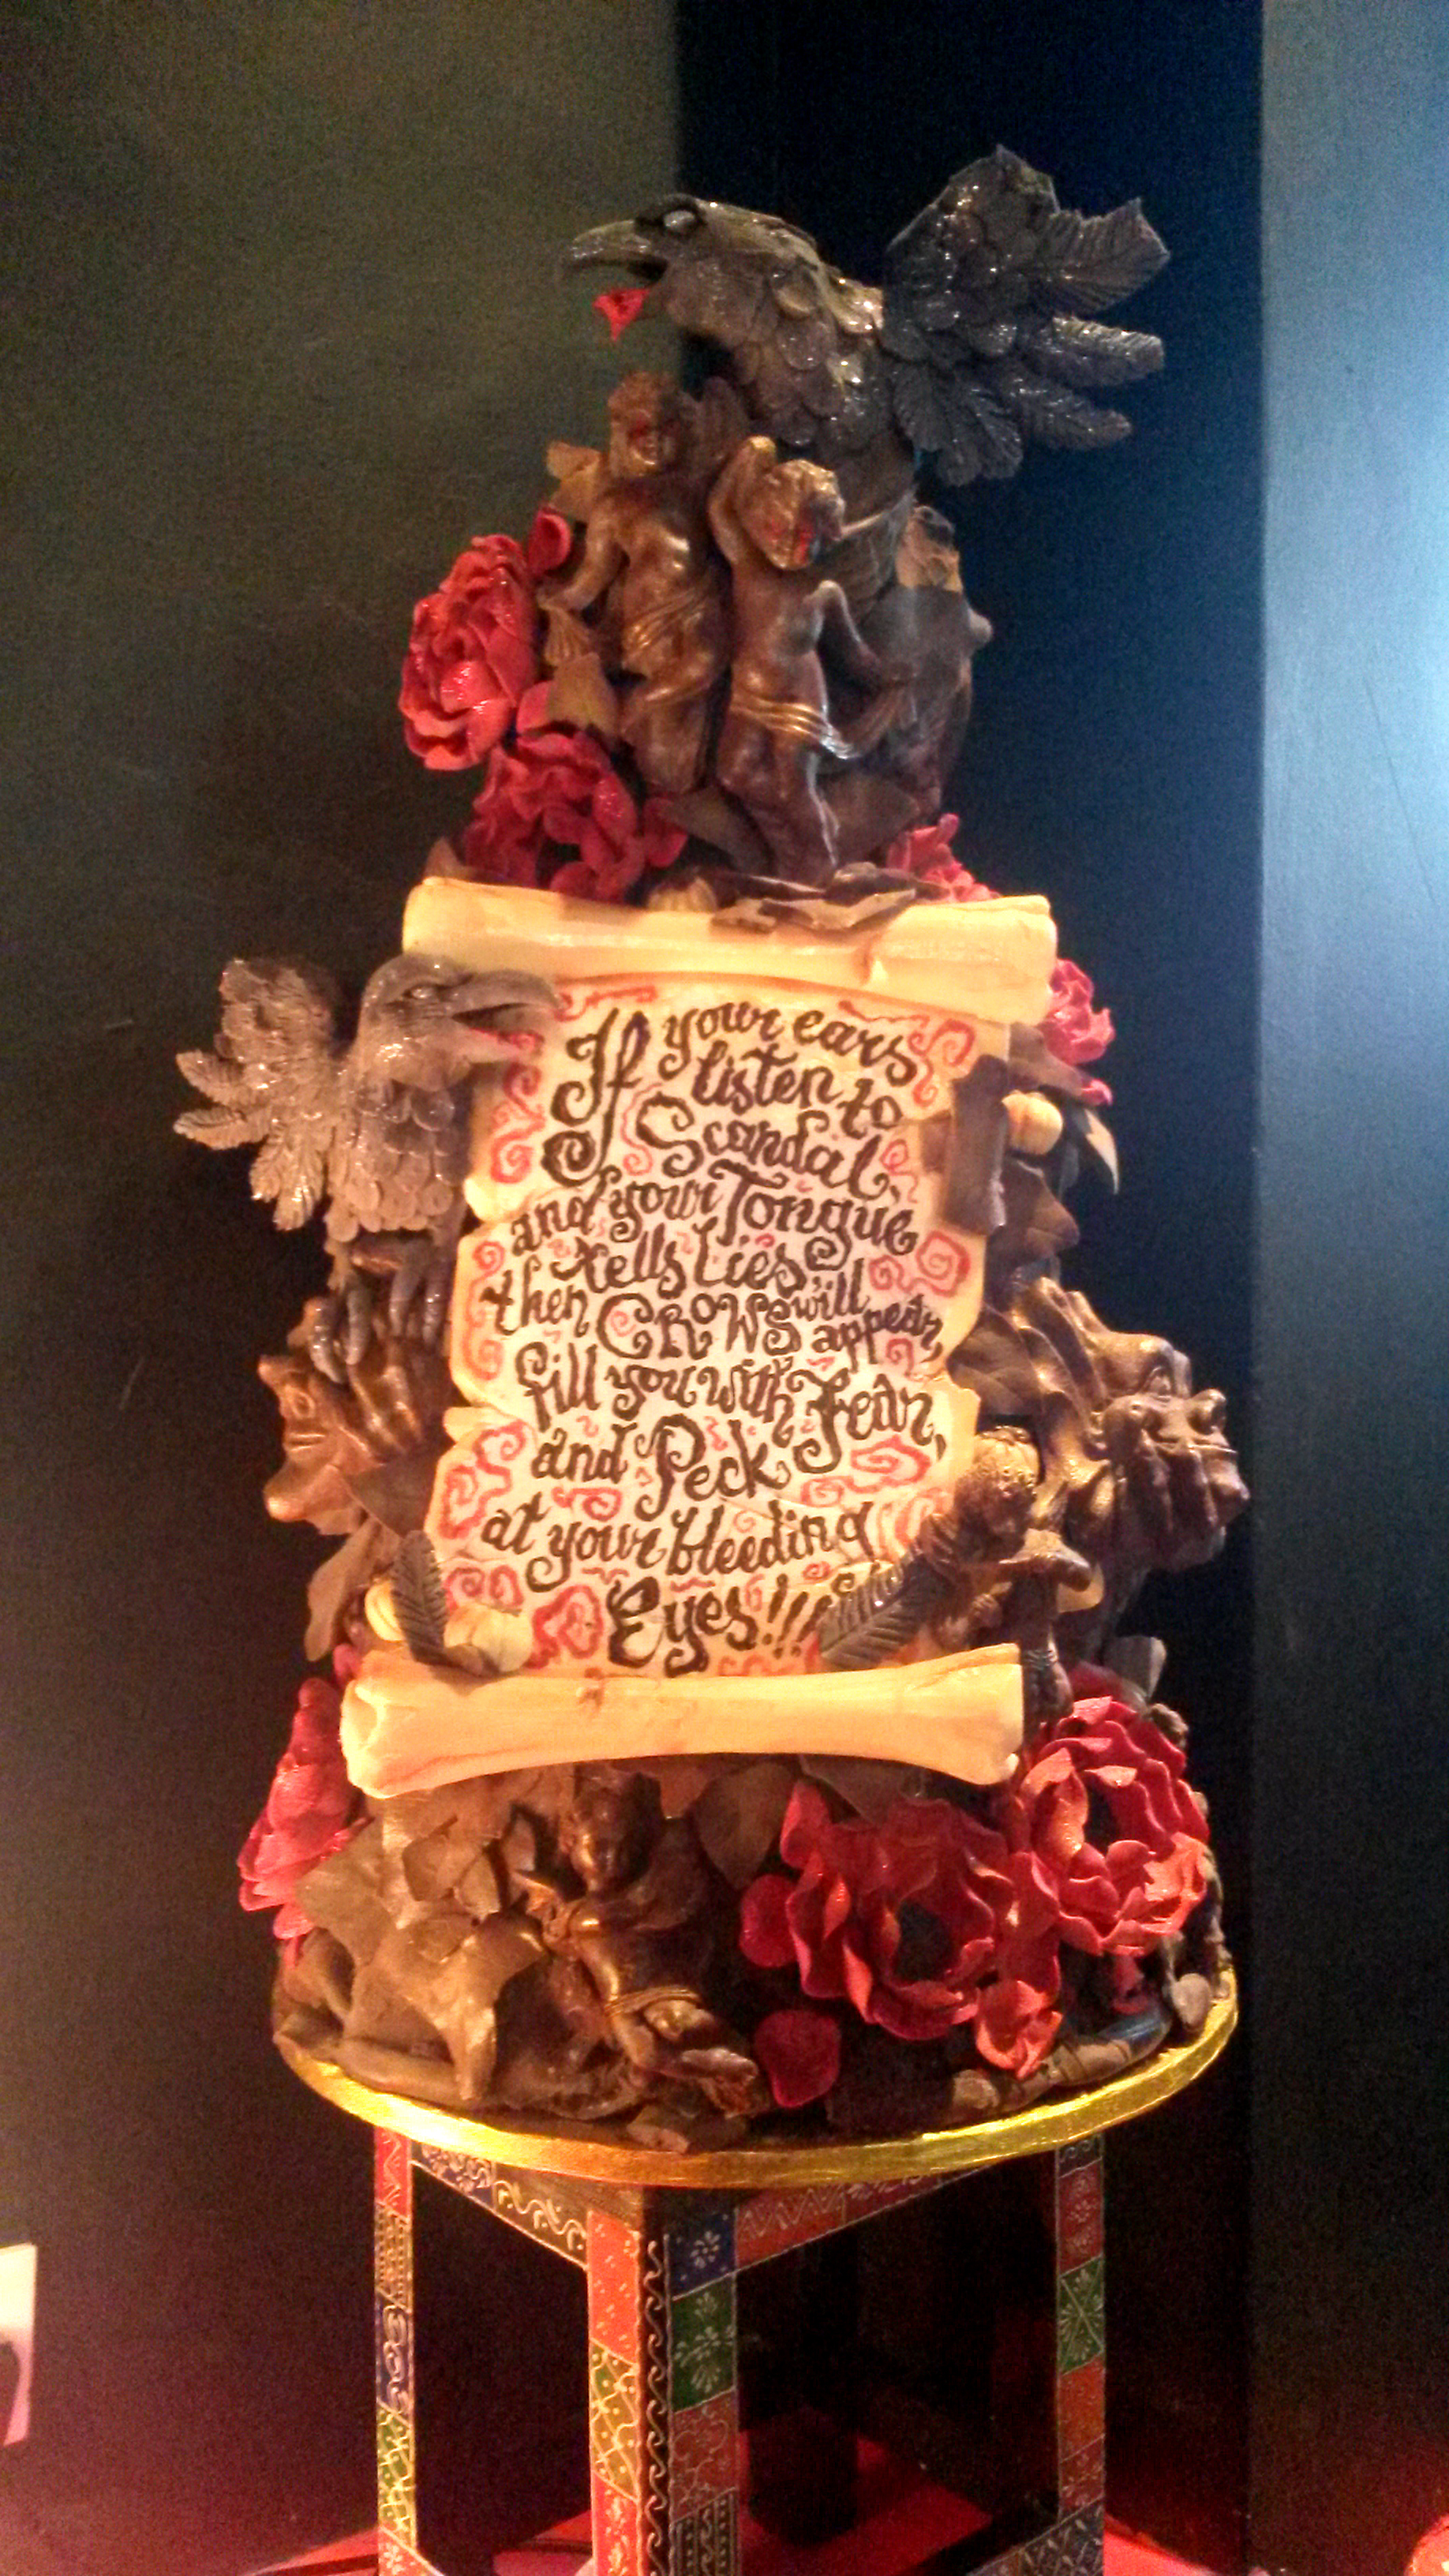 If your ears
listen to
Scandal,
and your Tongue
tells Lies
then CROWS will appear,
fill you with Fear,
and Peck
at your bleeding
Eyes!!!